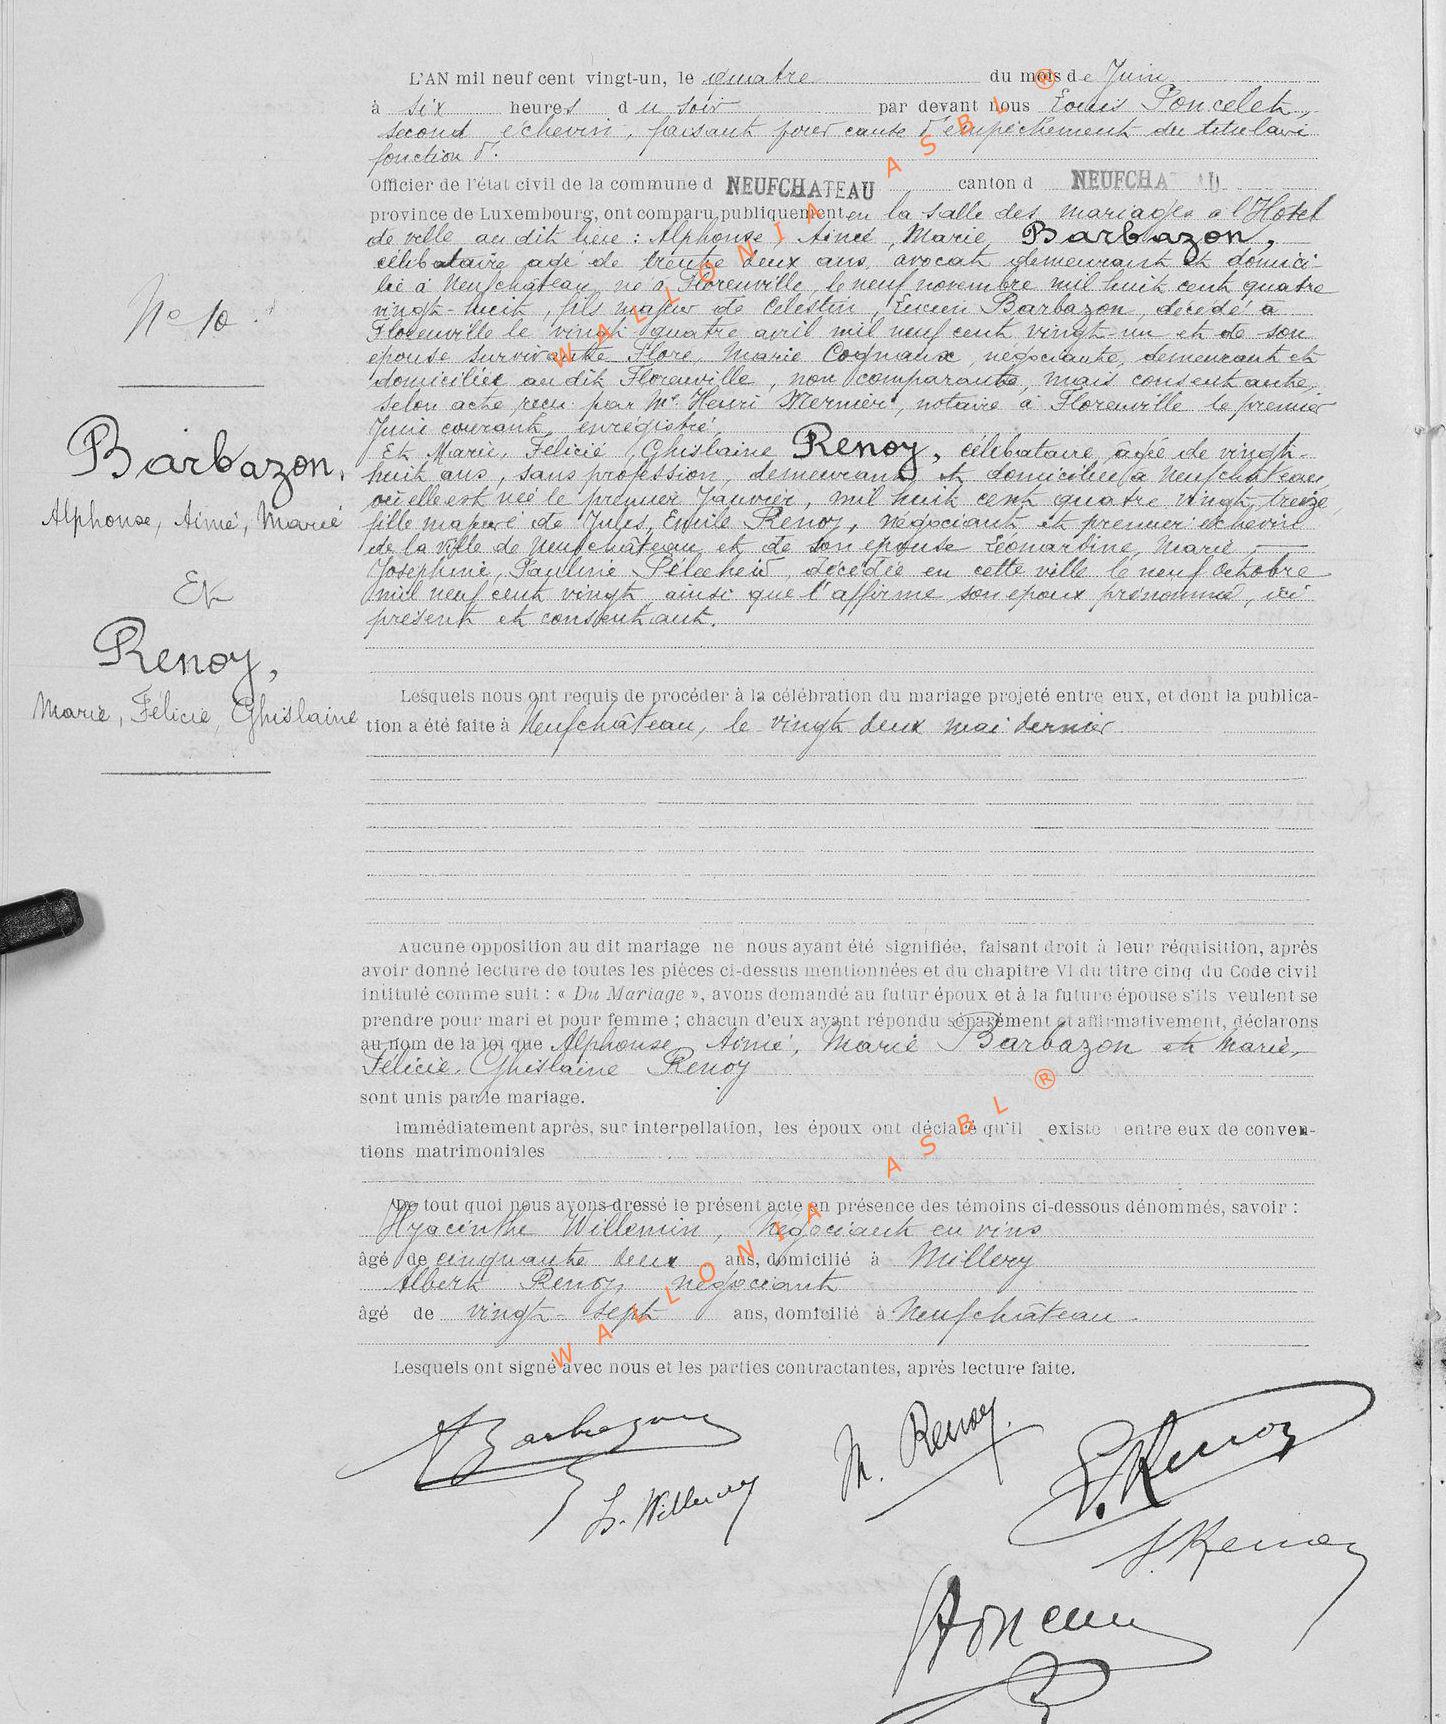 L'AN mil neuf cent vingt-un, le quatre du mois de Juin
à six heures du soir par devant nous Louis Poncelet,
second echevin, faisant pour cause d'empêchement du titulaire
fonction d'
Officier de l'état civil de la commune d NEUFCHATEAU canton d NEUFCHATEAU
province de Luxembourg, ont comparu publiquement en la salle des mariages à l'Hotel
de ville au dit lieu : Alphonse, Aimé, Marie, Barbazon,
célibataire agé de trente deux ans, avocat demeurant et domici-
lié à Neufchateau, né à Florenville, le neuf novembre mil huit cent quatre
vingt-huit, fils majeur de Celestin, Lucien Barbazon, décédé à
Florenville le vingt quatre avril mil neuf cent vingt-un et de son
epouse survivante Flore, Marie Cognaux, négociante, demeurant et
domiciliée au dit Florenville, non comparante, mais consentante,
selon acte reçu par Me Henri Mernier, notaire à Florenville le premier
Juin courant, enregistré.
Et Marie, Félicie, Ghislaine Renoy, célibataire, âgée de vingt-
huit ans, sans profession, demeurant et domiciliée à Neufchateau
où elle est née le premier Janvier, mil huit cent quatre vingt treize,
fille majeure de Jules, Emile Renoy, négociant et premier echevin
de la ville de Neufchâteau et de son epouse Léonardine, Marie
Josephine, Pauline Pélecheid, décédée en cette ville le neuf Octobre
mil neuf cent vingt ainsi que l'affirme son epoux prénommé, ici
présent et consentant.
No 10
Barbazon,
Alphonse, Aimé, Marie
Et
Renoy,
Marie, Félicie, Ghislaine
Lesquels nous ont requis de procéder à la célébration du mariage projeté entre eux, et dont la publica-
tion a été faite à Neufchâteau, le vingt deux mai dernier
Aucune opposition au dit mariage ne nous ayant été signifiée, faisant droit à leur réquisition, après
avoir donné lecture de toutes les pièces ci-dessus mentionnées et du chapitre VI du titre cinq du Code civil
intitulé comme suit : « Du Mariage », avons demandé au futur époux et à la future épouse s'ils veulent se
prendre pour mari et pour femme ; chacun d'eux ayant répondu séparément et affirmativement, déclarons
au nom de la loi que Alphonse, Aimé, Marie Barbazon et Marie,
Félicie, Ghislaine Renoy
sont unis par le mariage.
Immédiatement après, sur interpellation, les époux ont déclaré qu'il existe entre eux de conven-
tions matrimoniales
De tout quoi nous avons dressé le présent acte en présence des témoins ci-dessous dénommés, savoir :
Hyacinthe Willemin, négociant en vins
âgé de cinquante deux ans, domicilié à Millery
Albert Renoy, négociant
âgé de vingt-sept ans, domicilié à Neufchâteau.
Lesquels ont signé avec nous et les parties contractantes, après lecture faite.
A Barbazon
M. Renoy.
Renoy
Renoy
WALLONIA ASBL ®
WALLONIA ASBL ®